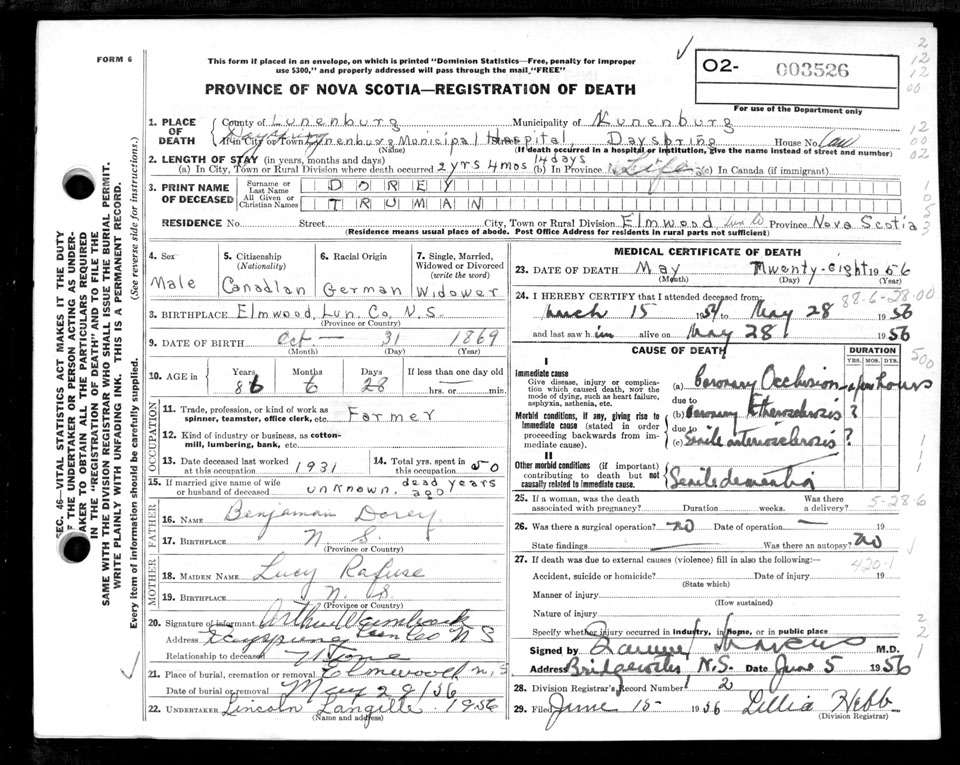 FORM 6
This form if placed in an envelope, on which is printed "Dominion Statistics—Free, penalty for improper
use $300," and properly addressed will pass through the mail "FREE"
O2- 003526
PROVINCE OF NOVA SCOTIA—REGISTRATION OF DEATH
For use of the Department only
1. PLACE OF DEATH County of Lunenburg Municipality of Lunenburg
If in City or Town Lunenburg Municipal Hospital, Dayspring House No.
(Name) Street (If death occurred in a hospital or institution, give the name instead of street and number)
2. LENGTH OF STAY (in years, months and days)
(a) In City, Town or Rural Division where death occurred 2 yrs 4 mos 14 days (b) In Province Life (c) In Canada (if immigrant)
3. PRINT NAME OF DECEASED Surname or Last Name DOREY
All Given or Christian Names TRUMAN
RESIDENCE No. Street City, Town or Rural Division Elmwood Lun Co Province Nova Scotia
(Residence means usual place of abode. Post Office Address for residents in rural parts not sufficient)
4. Sex Male
5. Citizenship (Nationality) Canadian
6. Racial Origin German
7. Single, Married, Widowed or Divorced (write the word) Widower
8. BIRTHPLACE Elmwood, Lun. Co, N.S.
(Province or Country)
9. DATE OF BIRTH Oct — 31 1869
(Month) (Day) (Year)
10. AGE in Years 86 Months 6 Days 28 If less than one day old
hrs. or min.
OCCUPATION
11. Trade, profession, or kind of work as spinner, teamster, office clerk, etc. Farmer
12. Kind of industry or business, as cotton-mill, lumbering, bank, etc.
13. Date deceased last worked at this occupation 1931
14. Total yrs. spent in this occupation 50
15. If married give name of wife or husband of deceased unknown. dead years ago
FATHER
16. NAME Benjaman Dorey
17. BIRTHPLACE N. S.
(Province or Country)
MOTHER
18. MAIDEN NAME Lucy Rafuse
19. BIRTHPLACE N. S.
(Province or Country)
20. Signature of informant Arthur
Address Dayspring Lun Co N S
Relationship to deceased None
21. Place of burial, cremation or removal Elmwood N.S
Date of burial or removal May 29/56
22. UNDERTAKER Lincoln Langille. 1956
(Name and address)
MEDICAL CERTIFICATE OF DEATH
23. DATE OF DEATH May Twenty-eight 1956
(Month) (Day) (Year)
24. I HEREBY CERTIFY that I attended deceased from:
March 15 1954 to May 28 1956
and last saw him alive on May 28 1956
CAUSE OF DEATH DURATION
YRS. MOS. DYS.
I
Immediate cause
Give disease, injury or complication which caused death, NOT the mode of dying, such as heart failure, asphyxia, asthenia, etc.
(a) Coronary Occlusion a few hours
due to
Morbid conditions, if any, giving rise to immediate cause (stated in order proceeding backwards from immediate cause).
(b) Coronary Atherosclerosis ?
due to
(c) Senile arteriosclerosis ?
II
Other morbid conditions (if important) contributing to death but not causally related to immediate cause.
Senile dementia
25. If a woman, was the death associated with pregnancy? Duration weeks. Was there a delivery?
5-28-6
26. Was there a surgical operation? no Date of operation — 19
State findings Was there an autopsy? no
27. If death was due to external causes (violence) fill in also the following:—
420-1
Accident, suicide or homicide? Date of injury 19
(State which)
Manner of injury
(How sustained)
Nature of injury
Specify whether injury occurred in industry, in home, or in public place
Signed by M.D.
Address Bridgewater N.S. Date June 5 1956
28. Division Registrar's Record Number 12
29. Filed June 15 1956 Lillia Hebb
(Division Registrar)
SEC. 46—VITAL STATISTICS ACT MAKES IT THE DUTY
OF THE UNDERTAKER OR PERSON ACTING AS UNDER-
TAKER TO OBTAIN ALL THE PARTICULARS REQUIRED
IN THE "REGISTRATION OF DEATH" AND TO FILE THE
SAME WITH THE DIVISION REGISTRAR WHO SHALL ISSUE THE BURIAL PERMIT.
WRITE PLAINLY WITH UNFADING INK. THIS IS A PERMANENT RECORD.
Every item of information should be carefully supplied. (See reverse side for instructions.)